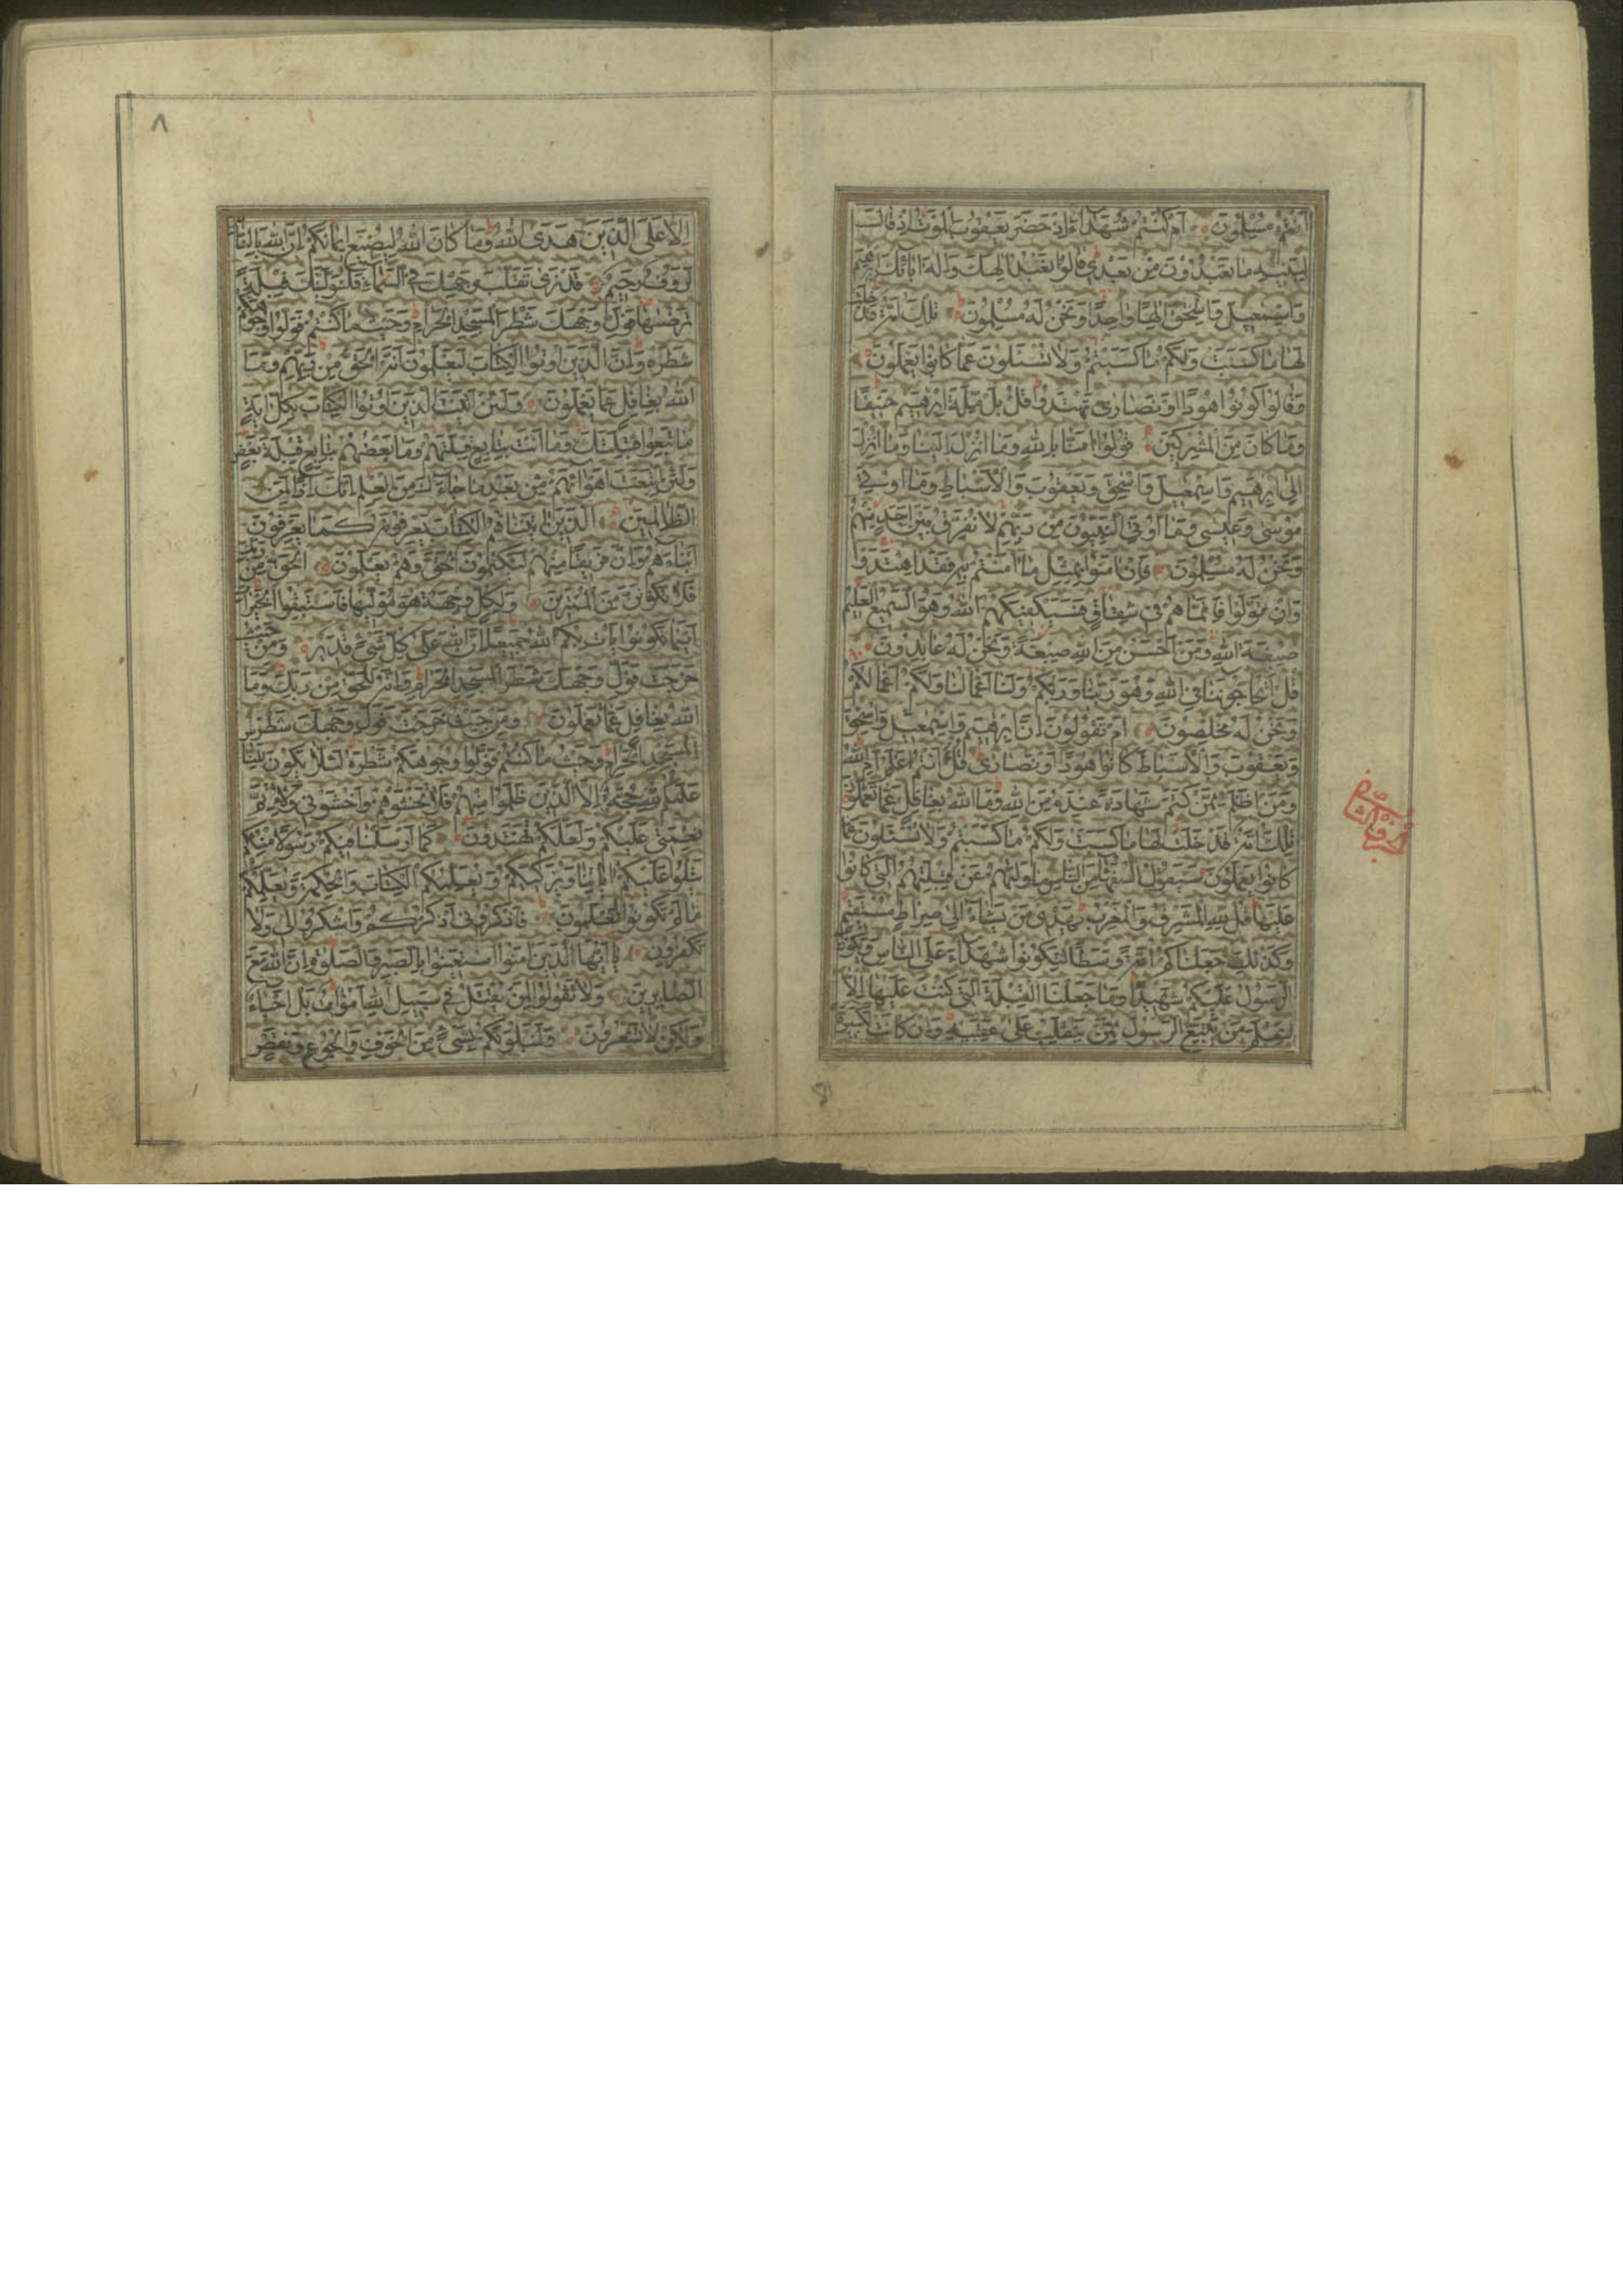 اَنْتُمْ مُسْلِمُونَ اَمْ كُنْتُمْ شُهَدَاءَ اِذْ حَضَرَ يَعْقُوبَ الْمَوْتُ اِذْ قَالَ
لِبَنِيهِ مَا تَعْبُدُونَ مِنْ بَعْدِي قَالُوا نَعْبُدُ اِلٰهَكَ وَاِلٰهَ اٰبَائِكَ اِبْرٰهِيمَ
وَاِسْمٰعِيلَ وَاِسْحٰقَ اِلٰهًا وَاحِدًا وَنَحْنُ لَهُ مُسْلِمُونَ تِلْكَ اُمَّةٌ قَدْ خَلَتْ
لَهَا مَا كَسَبَتْ وَلَكُمْ مَا كَسَبْتُمْ وَلَا تُسْئَلُونَ عَمَّا كَانُوا يَعْمَلُونَ
وَقَالُوا كُونُوا هُودًا اَوْ نَصَارٰى تَهْتَدُوا قُلْ بَلْ مِلَّةَ اِبْرٰهِيمَ حَنِيفًا
وَمَا كَانَ مِنَ الْمُشْرِكِينَ قُولُوا اٰمَنَّا بِاللهِ وَمَا اُنْزِلَ اِلَيْنَا وَمَا اُنْزِلَ
اِلٰى اِبْرٰهِيمَ وَاِسْمٰعِيلَ وَاِسْحٰقَ وَيَعْقُوبَ وَالْاَسْبَاطِ وَمَا اُوتِيَ
مُوسٰى وَعِيسٰى وَمَا اُوتِيَ النَّبِيُّونَ مِنْ رَبِّهِمْ لَا نُفَرِّقُ بَيْنَ اَحَدٍ مِنْهُمْ
وَنَحْنُ لَهُ مُسْلِمُونَ فَاِنْ اٰمَنُوا بِمِثْلِ مَا اٰمَنْتُمْ بِهِ فَقَدِ اهْتَدَوْا
وَاِنْ تَوَلَّوْا فَاِنَّمَا هُمْ فِي شِقَاقٍ فَسَيَكْفِيكَهُمُ اللهُ وَهُوَ السَّمِيعُ الْعَلِيمُ
صِبْغَةَ اللهِ وَمَنْ اَحْسَنُ مِنَ اللهِ صِبْغَةً وَنَحْنُ لَهُ عَابِدُونَ
قُلْ اَتُحَاجُّونَنَا فِي اللهِ وَهُوَ رَبُّنَا وَرَبُّكُمْ وَلَنَا اَعْمَالُنَا وَلَكُمْ اَعْمَالُكُمْ
وَنَحْنُ لَهُ مُخْلِصُونَ اَمْ تَقُولُونَ اِنَّ اِبْرٰهِيمَ وَاِسْمٰعِيلَ وَاِسْحٰقَ
وَيَعْقُوبَ وَالْاَسْبَاطَ كَانُوا هُودًا اَوْ نَصَارٰى قُلْ ءَاَنْتُمْ اَعْلَمُ اَمِ اللهُ
وَمَنْ اَظْلَمُ مِمَّنْ كَتَمَ شَهَادَةً عِنْدَهُ مِنَ اللهِ وَمَا اللهُ بِغَافِلٍ عَمَّا تَعْمَلُونَ
تِلْكَ اُمَّةٌ قَدْ خَلَتْ لَهَا مَا كَسَبَتْ وَلَكُمْ مَا كَسَبْتُمْ وَلَا تُسْئَلُونَ عَمَّا
كَانُوا يَعْمَلُونَ سَيَقُولُ السُّفَهَاءُ مِنَ النَّاسِ مَا وَلّٰيهُمْ عَنْ قِبْلَتِهِمُ الَّتِي كَانُوا
عَلَيْهَا قُلْ لِلّٰهِ الْمَشْرِقُ وَالْمَغْرِبُ يَهْدِي مَنْ يَشَاءُ اِلٰى صِرَاطٍ مُسْتَقِيمٍ
وَكَذٰلِكَ جَعَلْنَاكُمْ اُمَّةً وَسَطًا لِتَكُونُوا شُهَدَاءَ عَلَى النَّاسِ وَيَكُونَ
الرَّسُولُ عَلَيْكُمْ شَهِيدًا وَمَا جَعَلْنَا الْقِبْلَةَ الَّتِي كُنْتَ عَلَيْهَا اِلَّا
لِنَعْلَمَ مَنْ يَتَّبِعُ الرَّسُولَ مِمَّنْ يَنْقَلِبُ عَلٰى عَقِبَيْهِ وَاِنْ كَانَتْ لَكَبِيرَةً
٨
اِلَّا عَلَى الَّذِينَ هَدَى اللهُ وَمَا كَانَ اللهُ لِيُضِيعَ اِيمَانَكُمْ اِنَّ اللهَ بِالنَّاسِ
لَرَؤُفٌ رَحِيمٌ قَدْ نَرٰى تَقَلُّبَ وَجْهِكَ فِي السَّمَاءِ فَلَنُوَلِّيَنَّكَ قِبْلَةً
تَرْضٰيهَا فَوَلِّ وَجْهَكَ شَطْرَ الْمَسْجِدِ الْحَرَامِ وَحَيْثُ مَا كُنْتُمْ فَوَلُّوا وُجُوهَكُمْ
شَطْرَهُ وَاِنَّ الَّذِينَ اُوتُوا الْكِتَابَ لَيَعْلَمُونَ اَنَّهُ الْحَقُّ مِنْ رَبِّهِمْ وَمَا
اللهُ بِغَافِلٍ عَمَّا يَعْمَلُونَ وَلَئِنْ اَتَيْتَ الَّذِينَ اُوتُوا الْكِتَابَ بِكُلِّ اٰيَةٍ
مَا تَبِعُوا قِبْلَتَكَ وَمَا اَنْتَ بِتَابِعٍ قِبْلَتَهُمْ وَمَا بَعْضُهُمْ بِتَابِعٍ قِبْلَةَ بَعْضٍ
وَلَئِنِ اتَّبَعْتَ اَهْوَاءَهُمْ مِنْ بَعْدِ مَا جَاءَكَ مِنَ الْعِلْمِ اِنَّكَ اِذًا لَمِنَ
الظَّالِمِينَ الَّذِينَ اٰتَيْنَاهُمُ الْكِتَابَ يَعْرِفُونَهُ كَمَا يَعْرِفُونَ
اَبْنَاءَهُمْ وَاِنَّ فَرِيقًا مِنْهُمْ لَيَكْتُمُونَ الْحَقَّ وَهُمْ يَعْلَمُونَ اَلْحَقُّ مِنْ رَبِّكَ
فَلَا تَكُونَنَّ مِنَ الْمُمْتَرِينَ وَلِكُلٍّ وِجْهَةٌ هُوَ مُوَلِّيهَا فَاسْتَبِقُوا الْخَيْرَاتِ
اَيْنَمَا تَكُونُوا يَأْتِ بِكُمُ اللهُ جَمِيعًا اِنَّ اللهَ عَلٰى كُلِّ شَيْءٍ قَدِيرٌ وَمِنْ حَيْثُ
خَرَجْتَ فَوَلِّ وَجْهَكَ شَطْرَ الْمَسْجِدِ الْحَرَامِ وَاِنَّهُ لَلْحَقُّ مِنْ رَبِّكَ وَمَا
اللهُ بِغَافِلٍ عَمَّا تَعْمَلُونَ وَمِنْ حَيْثُ خَرَجْتَ فَوَلِّ وَجْهَكَ شَطْرَ
الْمَسْجِدِ الْحَرَامِ وَحَيْثُ مَا كُنْتُمْ فَوَلُّوا وُجُوهَكُمْ شَطْرَهُ لِئَلَّا يَكُونَ لِلنَّاسِ
عَلَيْكُمْ حُجَّةٌ اِلَّا الَّذِينَ ظَلَمُوا مِنْهُمْ فَلَا تَخْشَوْهُمْ وَاخْشَوْنِي وَلِاُتِمَّ
نِعْمَتِي عَلَيْكُمْ وَلَعَلَّكُمْ تَهْتَدُونَ كَمَا اَرْسَلْنَا فِيكُمْ رَسُولًا مِنْكُمْ
يَتْلُوا عَلَيْكُمْ اٰيَاتِنَا وَيُزَكِّيكُمْ وَيُعَلِّمُكُمُ الْكِتَابَ وَالْحِكْمَةَ وَيُعَلِّمُكُمْ
مَا لَمْ تَكُونُوا تَعْلَمُونَ فَاذْكُرُونِي اَذْكُرْكُمْ وَاشْكُرُوا لِي وَلَا
تَكْفُرُونِ يَا اَيُّهَا الَّذِينَ اٰمَنُوا اسْتَعِينُوا بِالصَّبْرِ وَالصَّلٰوةِ اِنَّ اللهَ مَعَ
الصَّابِرِينَ وَلَا تَقُولُوا لِمَنْ يُقْتَلُ فِي سَبِيلِ اللهِ اَمْوَاتٌ بَلْ اَحْيَاءٌ
وَلٰكِنْ لَا تَشْعُرُونَ وَلَنَبْلُوَنَّكُمْ بِشَيْءٍ مِنَ الْخَوْفِ وَالْجُوعِ وَنَقْصٍ